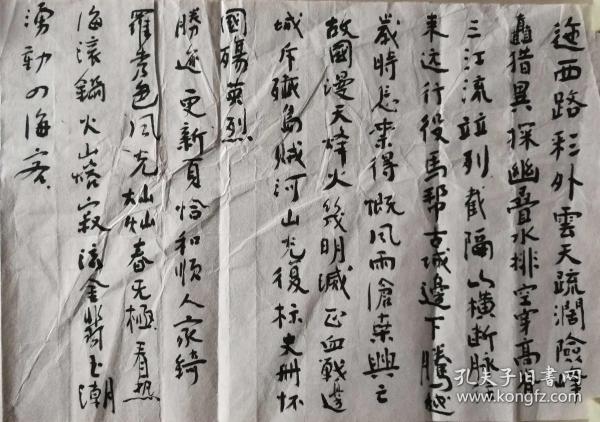 迤西路彩外雲天疏濶險峰
矗猎異探幽疊水排空穿高月
三江流竝列截隔山橫断脉
来远行役馬帮古城邊下騰越
歲時悲樂得慨風雨滄桒興亡
故國漫天烽火幾明滅正血戰邊
城斥殲島贼河山光復标史册怀
國殤英烈
勝迹更新頁恰和順人家綺
羅秀色風光灿灿春无極看热
海滚鍋火山熔寂流金翡玉潮
湧動四海客
孔夫子旧书网
www.kongfz.com